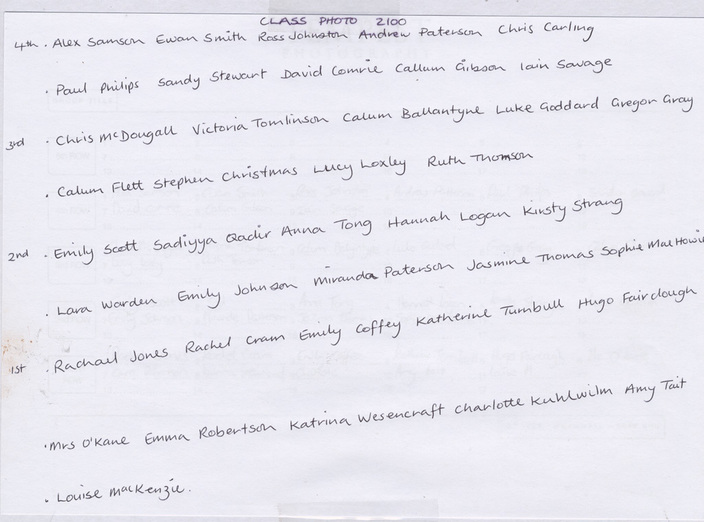 CLASS PHOTO 2100
4th. Alex Samson Ewan Smith Ross Johnston Andrew Paterson Chris Carling
. Paul Philips Sandy Stewart David Comrie Callum Gibson Iain Savage
3rd . Chris McDougall Victoria Tomlinson Calum Ballantyne Luke Goddard Gregor Gray
. Calum Flett Stephen Christmas Lucy Loxley Ruth Thomson
2nd . Emily Scott Sadiyya Qadir Anna Tong Hannah Logan Kirsty Strang
. Lara Warden Emily Johnson Miranda Paterson Jasmine Thomas Sophie
1st . Rachael Jones Rachel Cram Emily Coffey Katherine Turnbull Hugo Fairclough
. Mrs O'Kane Emma Robertson Katrina Wesencraft Charlotte Kuhlwilm Amy Tait
. Louise MacKenzie.